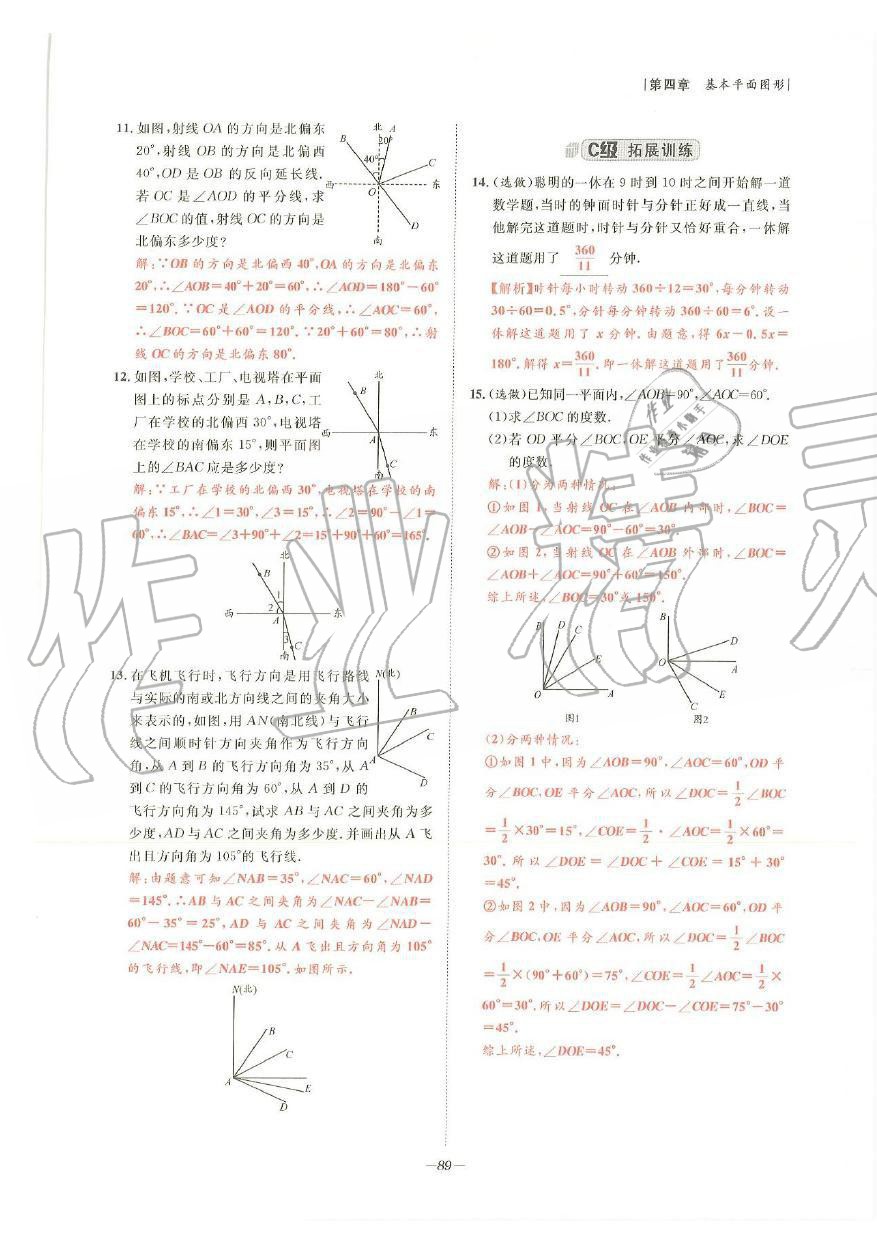 |第四章 基本平面图形|
11.如图,射线OA的方向是北偏东
20°,射线OB的方向是北偏西
40°,OD是OB的反向延长线.
若OC是∠AOD的平分线,求
∠BOC的值,射线OC的方向是
北偏东多少度?
北 A
B 20°
40° C
西 东
O
D
南
解:∵OB的方向是北偏西40°,OA的方向是北偏东
20°,∴∠AOB=40°+20°=60°,∴∠AOD=180°-60°
=120°.∵OC是∠AOD的平分线,∴∠AOC=60°,
∴∠BOC=60°+60°=120°.∵20°+60°=80°,∴射
线OC的方向是北偏东80°.
12.如图,学校、工厂、电视塔在平面
图上的标点分别是A,B,C,工
厂在学校的北偏西30°,电视塔
在学校的南偏东15°,则平面图
上的∠BAC应是多少度?
北
B
西 东
A
C
南
解:∵工厂在学校的北偏西30°,电视塔在学校的南
偏东15°,∴∠1=30°,∠3=15°,∴∠2=90°-∠1=
60°,∴∠BAC=∠3+90°+∠2=15°+90°+60°=165°.
北
B
1
西 2 东
A
3
C
南
13.在飞机飞行时,飞行方向是用飞行路线
与实际的南或北方向线之间的夹角大小
来表示的,如图,用AN(南北线)与飞行
线之间顺时针方向夹角作为飞行方向
角,从A到B的飞行方向角为35°,从A
到C的飞行方向角为60°,从A到D的
飞行方向角为145°,试求AB与AC之间夹角为多
少度,AD与AC之间夹角为多少度.并画出从A飞
出且方向角为105°的飞行线.
N(北)
B
C
A
D
解:由题意可知∠NAB=35°,∠NAC=60°,∠NAD
=145°.∴AB与AC之间夹角为∠NAC-∠NAB=
60°-35°=25°,AD与AC之间夹角为∠NAD-
∠NAC=145°-60°=85°.从A飞出且方向角为105°
的飞行线,即∠NAE=105°.如图所示.
N(北)
B
C
A
E
D
C级 拓展训练
14.(选做)聪明的一休在9时到10时之间开始解一道
数学题,当时的钟面时针与分针正好成一直线,当
他解完这道题时,时针与分针又恰好重合,一休解
这道题用了 360/11 分钟.
【解析】时针每小时转动360÷12=30°,每分钟转动
30÷60=0.5°,分针每分钟转动360÷60=6°.设一
休解这道题用了x分钟.由题意,得6x-0.5x=
180°.解得x=360/11.即一休解这道题用了360/11分钟.
15.(选做)已知同一平面内,∠AOB=90°,∠AOC=60°.
(1)求∠BOC的度数.
(2)若OD平分∠BOC,OE平分∠AOC,求∠DOE
的度数.
解:(1)分为两种情况:
①如图1,当射线OC在∠AOB内部时,∠BOC=
∠AOB-∠AOC=90°-60°=30°.
②如图2,当射线OC在∠AOB外部时,∠BOC=
∠AOB+∠AOC=90°+60°=150°.
综上所述,∠BOC=30°或150°.
B D C
E
O A
图1
B
D
O A
E
C
图2
(2)分两种情况:
①如图1中,因为∠AOB=90°,∠AOC=60°,OD平
分∠BOC,OE平分∠AOC,所以∠DOC=1/2∠BOC
=1/2×30°=15°,∠COE=1/2·∠AOC=1/2×60°=
30°.所以∠DOE=∠DOC+∠COE=15°+30°
=45°.
②如图2中,因为∠AOB=90°,∠AOC=60°,OD平
分∠BOC,OE平分∠AOC,所以∠DOC=1/2∠BOC
=1/2×(90°+60°)=75°,∠COE=1/2∠AOC=1/2×
60°=30°.所以∠DOE=∠DOC-∠COE=75°-30°
=45°.
综上所述,∠DOE=45°.
—89—
作业精灵